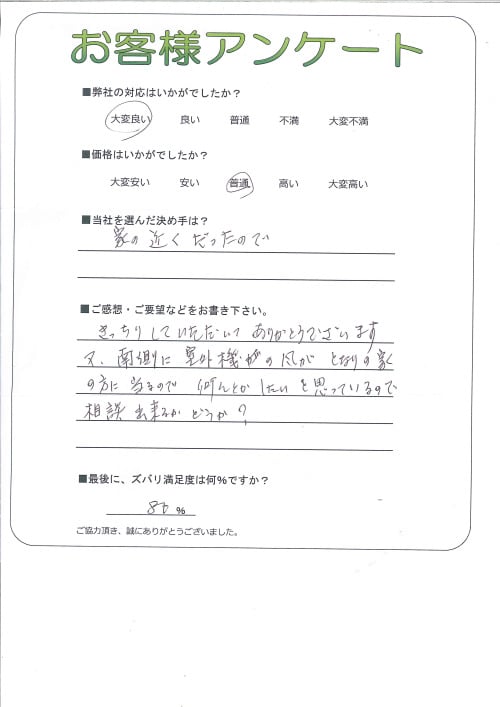 お客様アンケート
■弊社の対応はいかがでしたか？
大変良い 良い 普通 不満 大変不満
■価格はいかがでしたか？
大変安い 安い 普通 高い 大変高い
■当社を選んだ決め手は？
家の近くだったので
■ご感想・ご要望などをお書き下さい。
きっちりしていただいてありがとうございます
又、南側に室外機の風がとなりの家
の方に当るので何んとかしたいと思っているので
相談出来るかどうか？
■最後に、ズバリ満足度は何%ですか？
%
ご協力頂き、誠にありがとうございました。